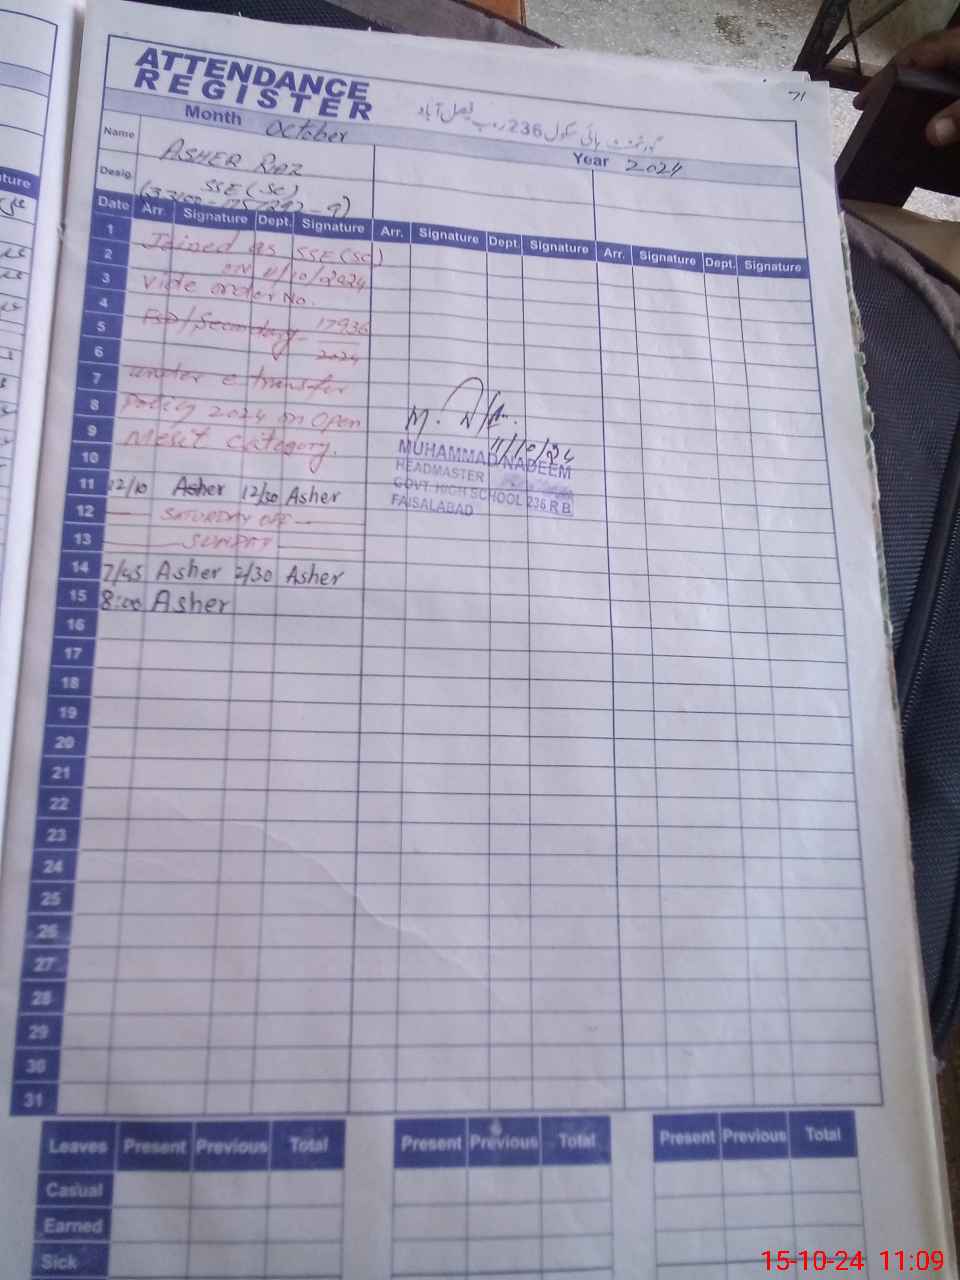 71
ATTENDANCE
REGISTER
گورنمنٹ ہائی سکول 236 ر ب فیصل آباد
Month October Year 2024
Name ASHER RIAZ
Desig SSE(SC)
Date Arr. Signature Dept. Signature Arr. Signature Dept. Signature Arr. Signature Dept. Signature
1 Joined as SSE(SC)
2 on 11/10/2024
3 vide order No.
4
5 /Secondary- 17936
6 2024
7 under e transfer
8 Policy 2024 on Open
9 Merit Category.
10
11/10/24
MUHAMMAD NADEEM
HEADMASTER
GOVT. HIGH SCHOOL 236 R B
FAISALABAD
11 12/10 Asher 12/30 Asher
12 SATURDAY OFF
13 SUNDAY
14 7/45 Asher 2/30 Asher
15 8:00 Asher
16
17
18
19
20
21
22
23
24
25
26
27
28
29
30
31
Leaves Present Previous Total Present Previous Total Present Previous Total
Casual
Earned
Sick
15-10-24 11:09